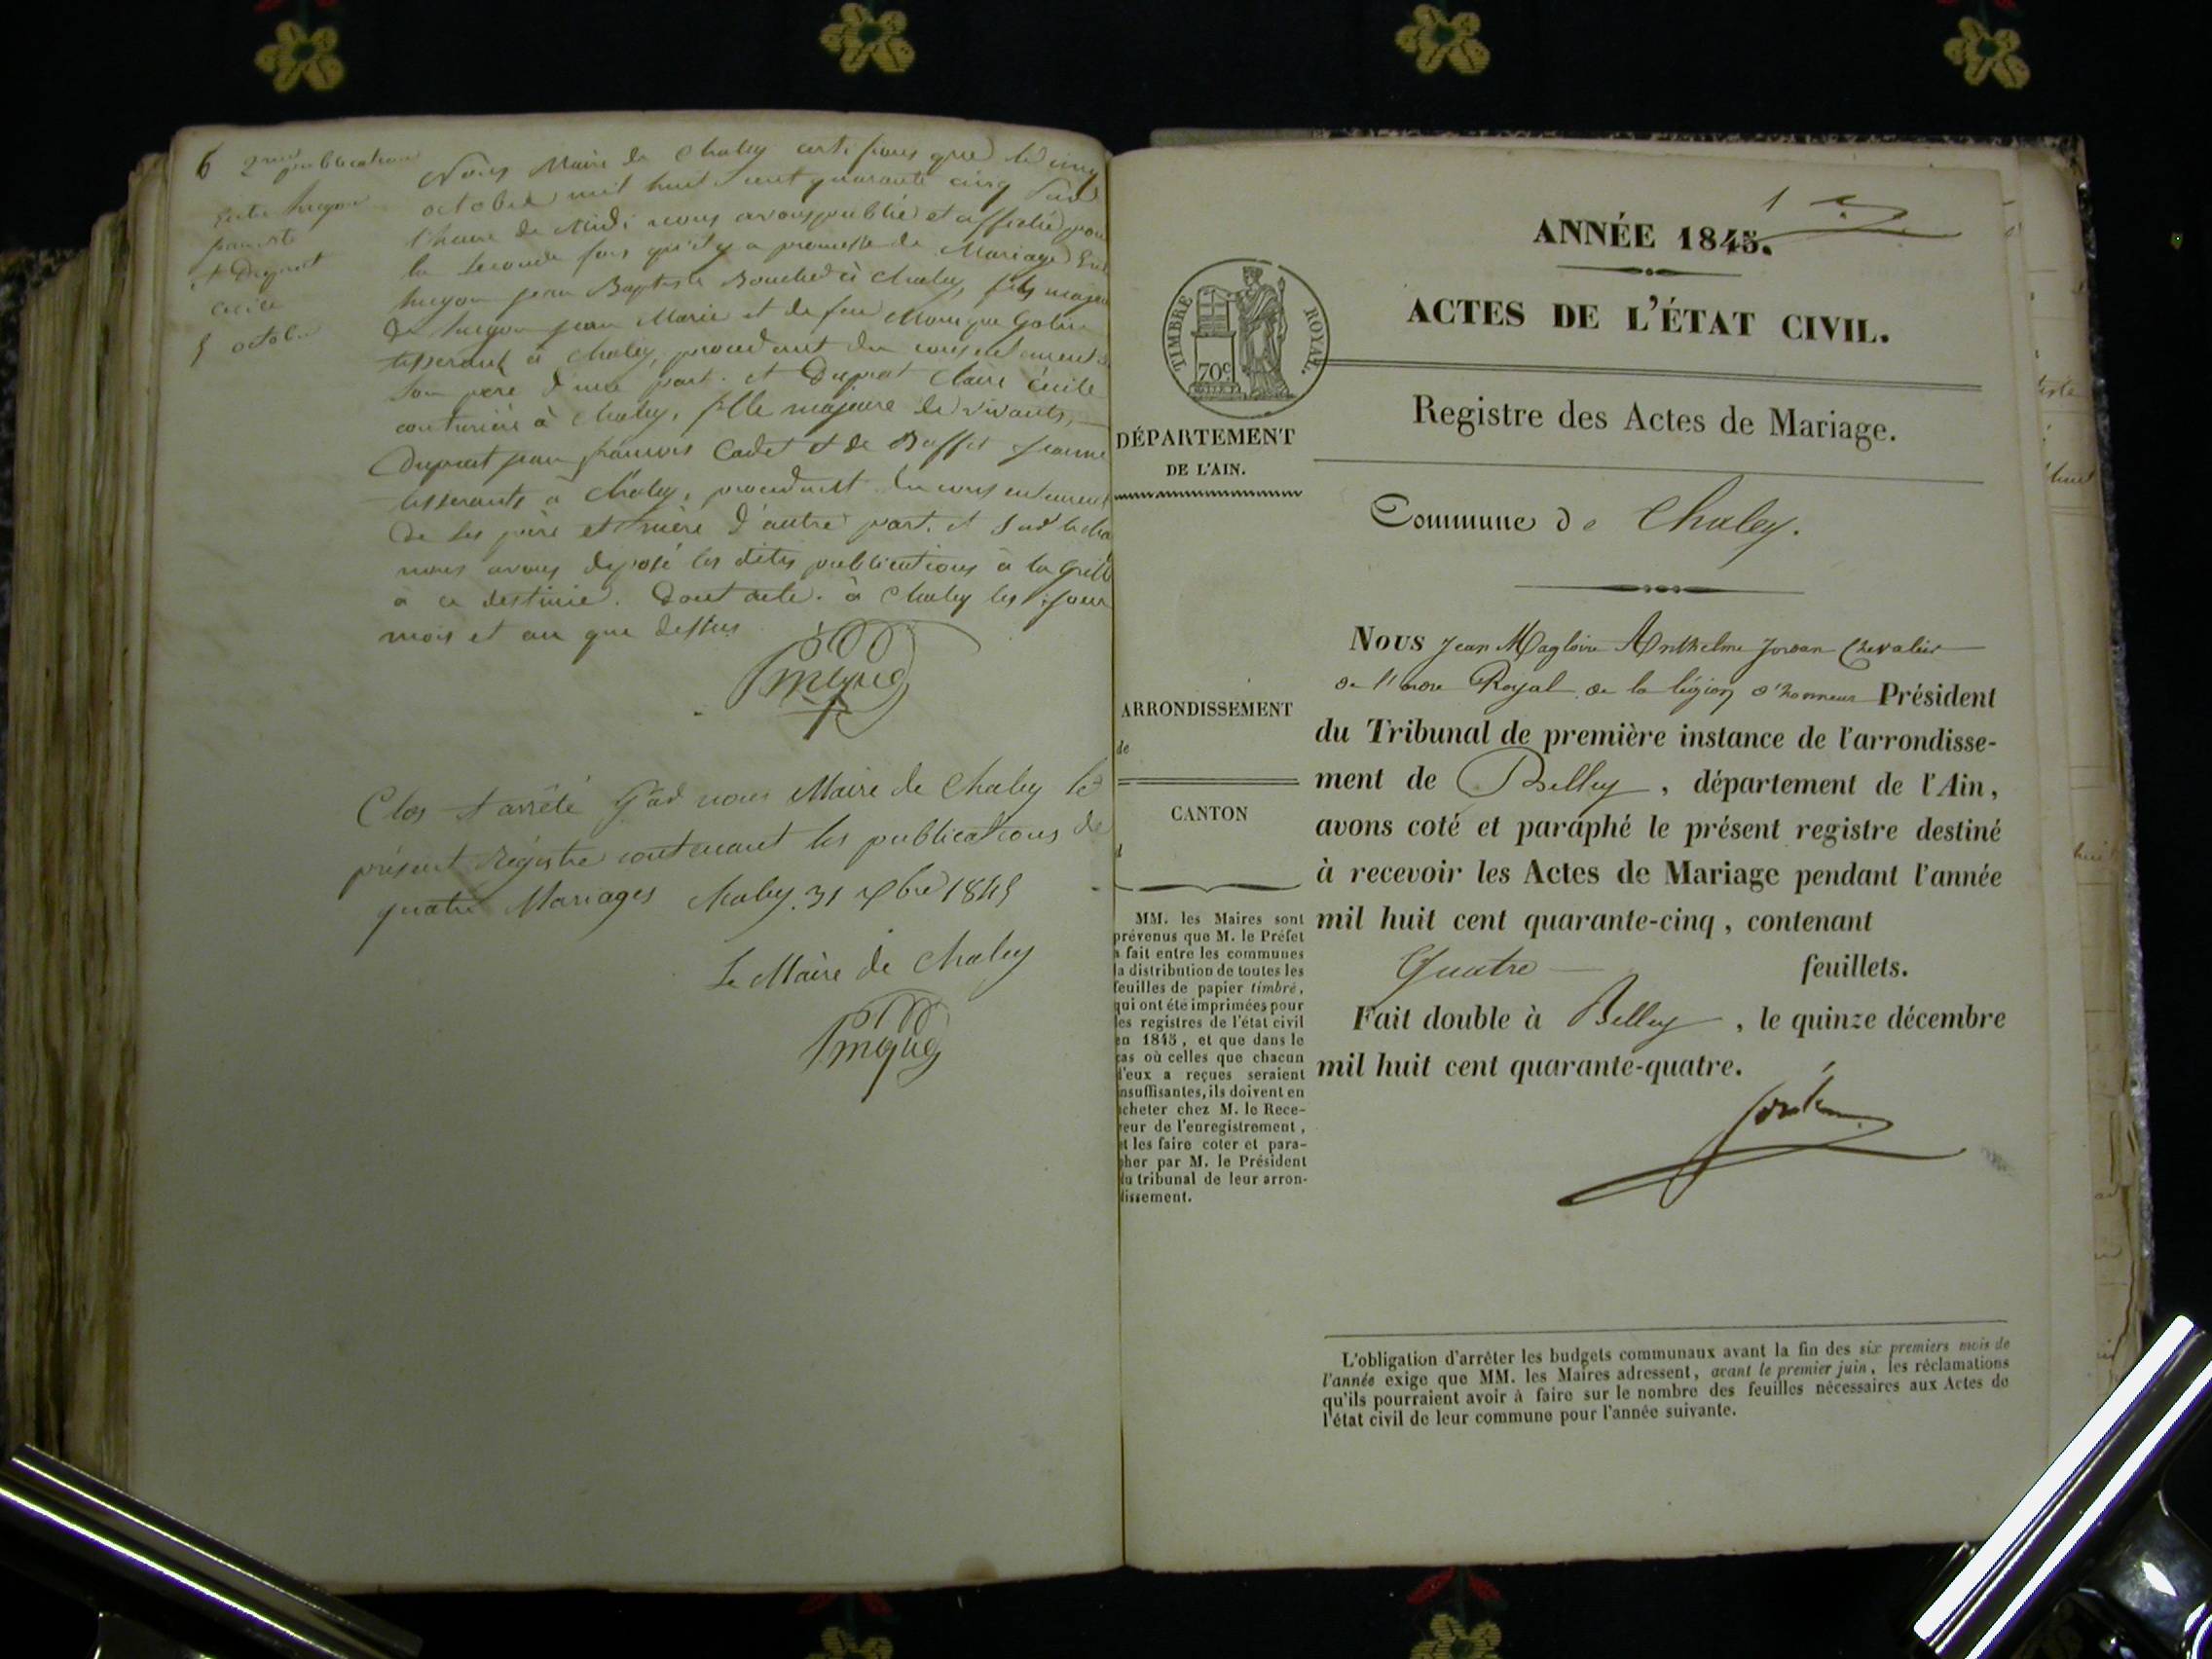 6 2me publication
entre
jean
et Duprat
Cécile
5 octobre
Nous Maire de Chaley certifions que le cinq
octobre mil huit cent quarante cinq sur
l'heure de Midi nous avons publié et affiché pour
la seconde fois qu'il y a promesse de Mariage Entre
jean Baptiste Boucher à Chaley, fils majeur
de jean Marie et de feu Monique
tisserant à Chaley, procedant du consentement de
son père d'une part. et Duprat Claire Cécile
couturière à Chaley, fille majeure de vivants,
Duprat jean françois Cadet et de Buffet jeanne
tisserants à Chaley, procedant du consentement
de ses père et mère d'autre part. et sur le cha
nous avons déposé les dites publications à la Grille
a ce destinée. Dont acte. à Chaley les jour
mois et an que dessus
Clos et arrêté par nous Maire de Chaley le
présent Régistre contenant les publications de
quatre Mariages Chaley 31 Xbre 1845
Le Maire de Chaley
1
ANNÉE 1845.
ACTES DE L'ÉTAT CIVIL.
TIMBRE ROYAL.
70c
Registre des Actes de Mariage.
DÉPARTEMENT
DE L'AIN.
Commune de Chaley.
Nous Jean Magloire Anthelme Jordan Chevalier
de l'ordre Royal de la légion d'honneur Président
du Tribunal de première instance de l'arrondisse-
ment de Belley, département de l'Ain,
avons coté et paraphé le présent registre destiné
à recevoir les Actes de Mariage pendant l'année
mil huit cent quarante-cinq, contenant
Quatre feuillets.
Fait double à Belley, le quinze décembre
mil huit cent quarante-quatre.
Jordan
ARRONDISSEMENT
de
CANTON
d
MM. les Maires sont
prévenus que M. le Préfet
a fait entre les communes
la distribution de toutes les
feuilles de papier timbré,
qui ont été imprimées pour
les registres de l'état civil
en 1845, et que dans le
cas où celles que chacun
d'eux a reçues seraient
insuffisantes, ils doivent en
acheter chez M. le Rece-
veur de l'enregistrement,
et les faire coter et para-
pher par M. le Président
du tribunal de leur arron-
dissement.
L'obligation d'arrêter les budgets communaux avant la fin des six premiers mois de
l'année exige que MM. les Maires adressent, avant le premier juin, les réclamations
qu'ils pourraient avoir à faire sur le nombre des feuilles nécessaires aux Actes de
l'état civil de leur commune pour l'année suivante.